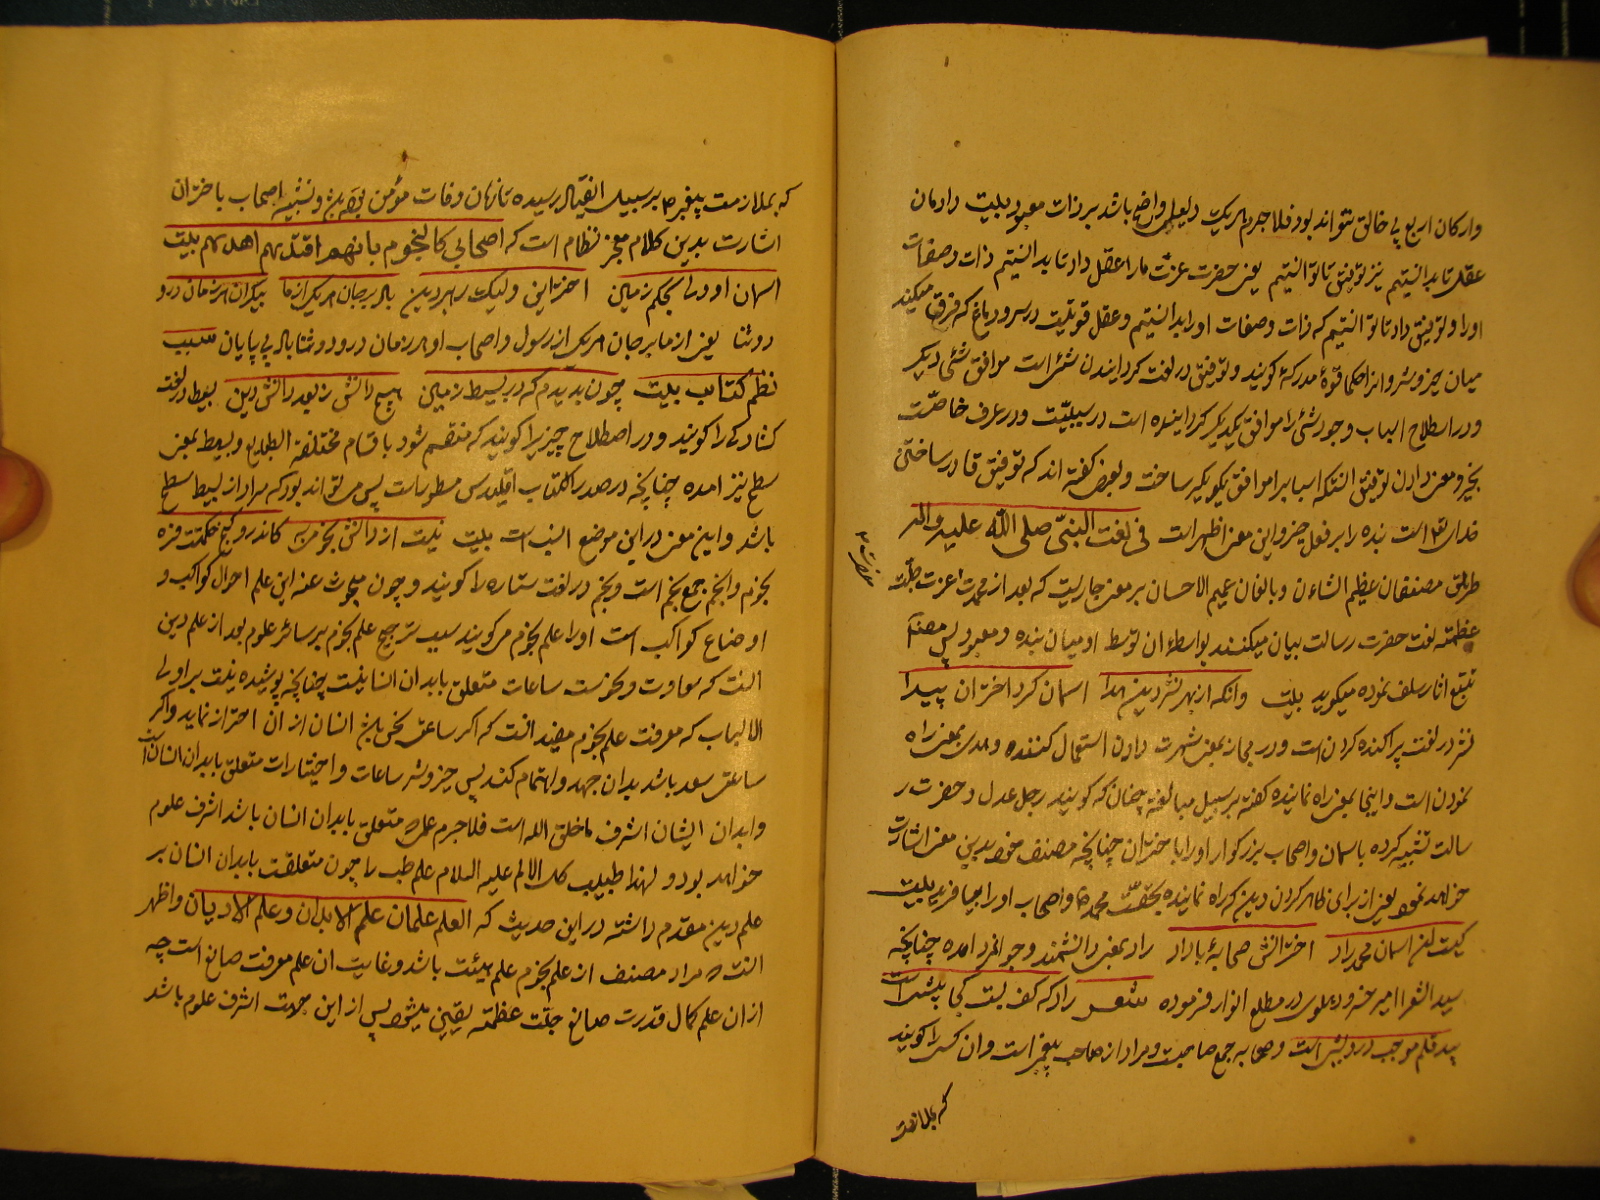 وارکان اربع بی خالق نتواند بود فلاجرم هر یک دلیلی واضح باشد بر ذات معبود بیت داد مان
عقل تا بدانستیم نیز توفیق تا توانستیم یعنی حضرت عزت ما را عقل داد تا بدانستیم ذات و صفات
او را و توفیق داد تا توانستیم که ذات و صفات او را بدانستیم و عقل قوتیست در سر و دماغ که فرق میکند
میان خیر و شر و انرا حکما قوة مدرکه کویند و توفیق در لغت کردانیدن شئی است موافق شئی دیکر
و در اصطلاح اسباب وجود شئی را موافق یکدیکر کردانیده است در سببیّت و در عرف خاصّت
بخیر و معنی دادن توفیق انستکه اسباب را موافق یکدیکر ساخت و بعضی کفته اند که توفیق قادر ساختن
خدای است بنده را بر فعل خیر و این معنی اظهر است فی لغت النبی صلی الله علیه واله
طریق مصنفان عظیم الشان و بالغان عمیم الاحسان بر معنی جاریست که بعد از محمدت عزت جلّت
حضرت
عظمته نعت حضرت رسالت بیان میکنند بواسطهٔ ان توسط او میان بنده و معبود پس مصنف
تتبع اثار سلف نموده میکوید بیت وانکه از بهر نشر دین هدا اسمان کرد اختران پیدا
نشر در لغت پراکنده کردن است و در مجاز بمعنی شهرت دادن استعمال کنند و هدی بمعنی راه
نمودن است و اینجا بمعنی راه نماینده کفته بر سبیل مبالغه چنان که کویند رجل عدل و حضرت ر
سالت تشبیه کرده باسمان و اصحاب بزرکوار او را با ختران چنانچه مصنف خود بدین معنی اشارت
خواهد نمود یعنی از برای ظاهر کردن دین که راه نماینده بحقست محمد و اصحاب او را بیافرید بیت
کیست این اسمان محمد راد اخترانش صحابهٔ با داد راد بمعنی دانشمند و جوانمرد امده چنانچه
سید الشعرا امیر خسرو دهلوی در مطلع انوار فرموده شعر راد که کف بست کجا پلشت است
بید قلم موجب درویشی است و صحابه جمع صاحبست و مراد از صاحب پیغمبر است و ان کس را کویند
که بملازمت
که بملازمت پیغمبر ص بر سبیل انقیاد رسیده تا زمان وفات مؤمن بوده باشد و تشبیه اصحاب با ختران
اشارت بدین کلام معجز نظام است که اصحابی کالنجوم بایهم اقتدیتم اهدیتم بیت
اسمان او ولی بحکم زمین اخترانی ولیک رهبر دین باد بر جان هر یک از ما بیکران هر زمان درو
د و ثنا یعنی از ما بر جان هر یک از رسول و اصحاب او هر زمان درود و ثنا باد بی پایان سبب
نظم کتاب بیت چون بدیدم که در بسیط زمین هیچ دانش ز بعد دانش دین بسیط در لغت
کشادکی را کویند و در اصطلاح چیزی را کویند که منقسم شود باقسام مختلفة الطبایع و بسیط بمعنی
سطح نیز امده چنانچه در صدر کتاب اقلیدس مسطور است پس می تواند بود که مراد از بسیط سطح
باشد و این معنی در این موضع انسب است بیت نیست از دانش نجوم به کاندرو کنج حکمتست فره
نجوم و انجم جمع نجم است و نجم در لغت ستاره را کویند و چون مبحوث عنه این علم احوال کواکب و
اوضاع کواکب است او را علم نجوم میکویند سبب ترجیح علم نجوم بر سائر علوم بعد از علم دین
انست که سعادت و نحوست ساعات متعلق بابدان انسانیست چنانچه پوشیده نیست بر اولی
الالباب که معرفت علم نجوم مفید انست که اکر ساعتی نحس باشد انسان از ان احتراز نماید و اکر
ساعتی سعد باشد بدان جهد و اهتمام کند پس خیر و شر ساعات و اختیارات متعلق بابدان انسان است
و ابدان ایشان اشرف ما خلق الله است فلاجرم علمی که متعلق بابدان انسان باشد اشرف علوم
خواهد بود و لهذا طبیب کل الالم علیه السلام علم طب را چون متعلقست بابدان انسان بر
علم دین مقدم داشته در این حدیث که العلم علمان علم الابدان و علم الادیان و اظهر
انست که مراد مصنف از علم نجوم علم هیئت باشد و غایت ان علم معرفت صانع است چه
از ان علم کمال قدرت صانع جلّت عظمته یقینی میشود پس از این جهت اشرف علوم باشد